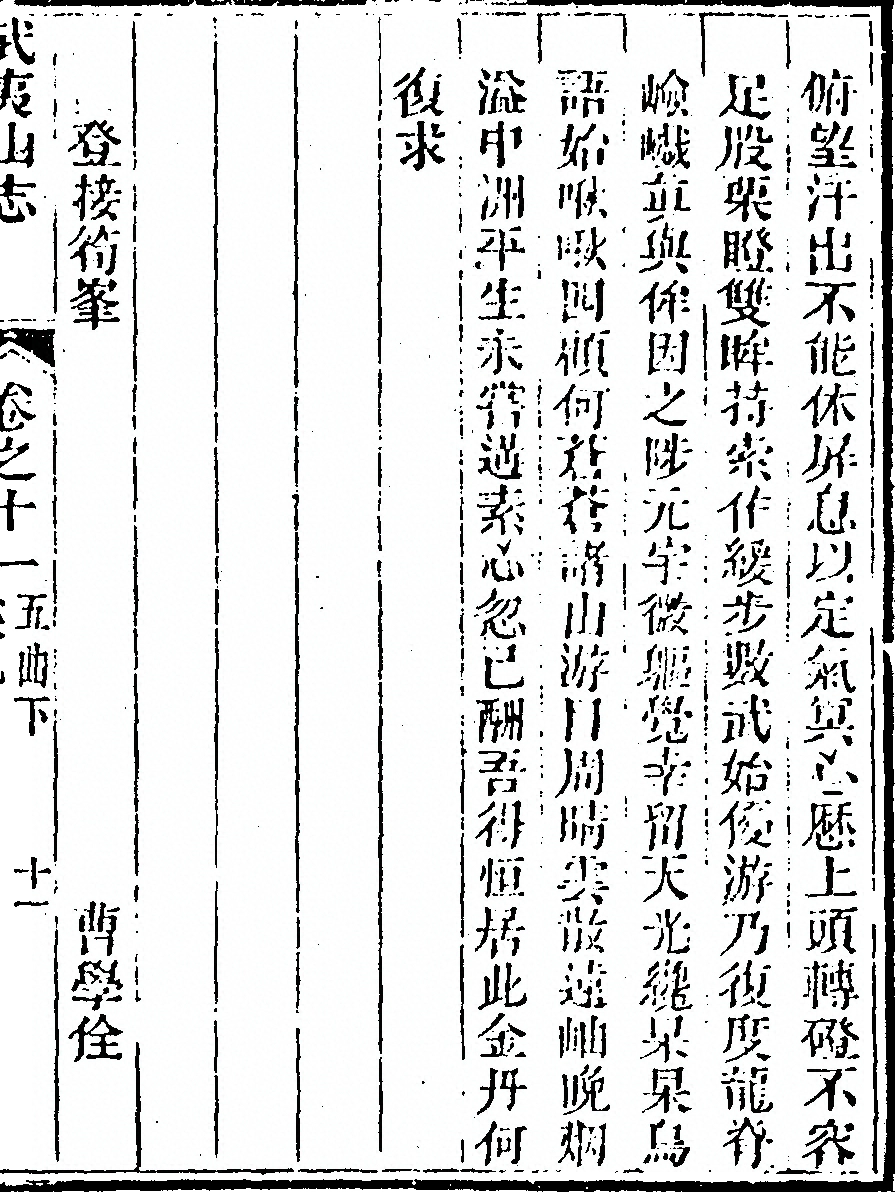 俯望汗出不能休屏息以定氣冥心歷上頭轉磴不容
足股栗瞪雙眸持索作緩步數武始優游乃復度龍脊
嶮巇並與侔因之陟元宇微軀覺幸留天光纔杲杲鳥
語始啾啾四顧何蒼蒼諸山游目周晴雲散遠岫晚烟
溢中洲平生未嘗遇素心忽已酬吾得恒居此金丹何
復求
登接筍峯
曹學佺
武夷山志
卷之十一
五曲下
十一